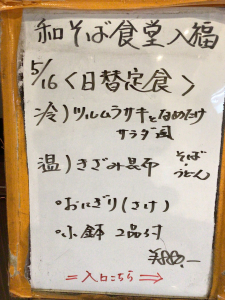 和そば食堂入福
5/16<日替定食>
冷)ツルムラサキとなめたけ
サラダ風
温)きざみ昆布 そば・うどん
・おにぎり(さけ)
・小鉢 2品付
¥880.-
=入口こちら⇒